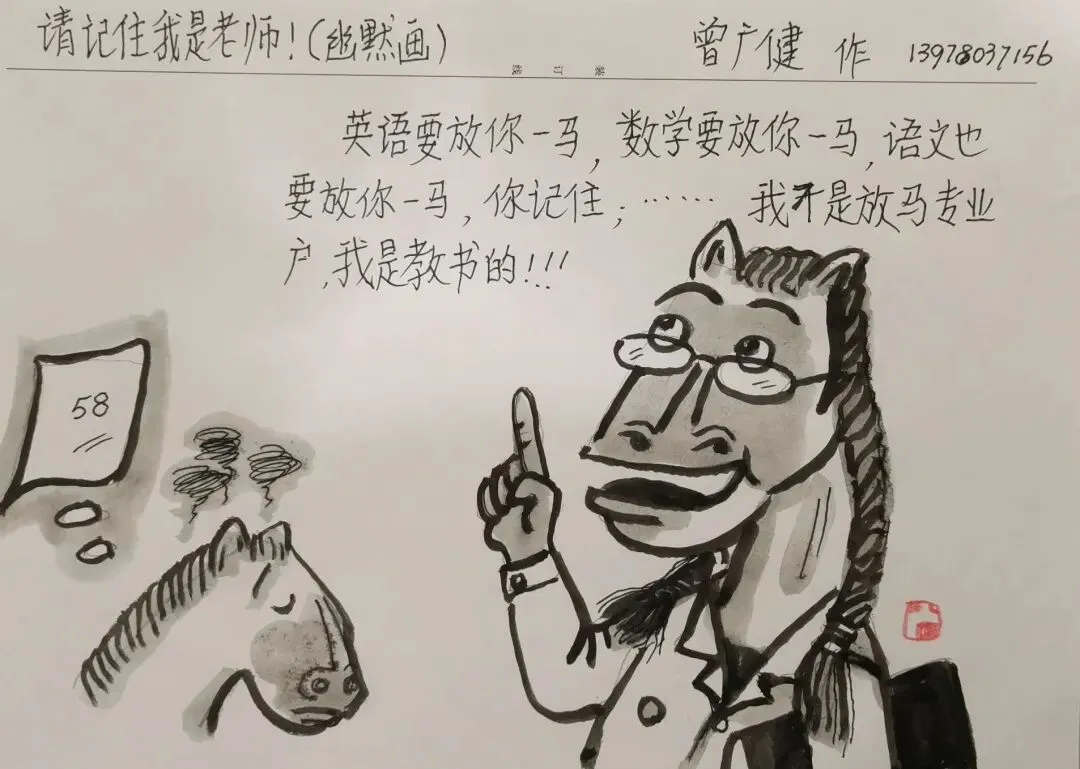 请记住我是老师！(幽默画) 曾广健 作 13978037156
线 订 装
英语要放你一马，数学要放你一马，语文也
要放你一马，你记住；…… 我不是放马专业
户，我是教书的！！！
58